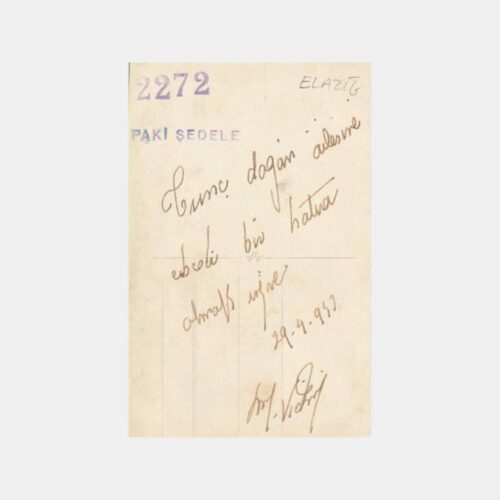 2272
ELAZIĞ
PAKİ ŞEDELE
Tunç doğan ailesine
ebedi bir hatıra
olmak üzre
29-4-943
M.